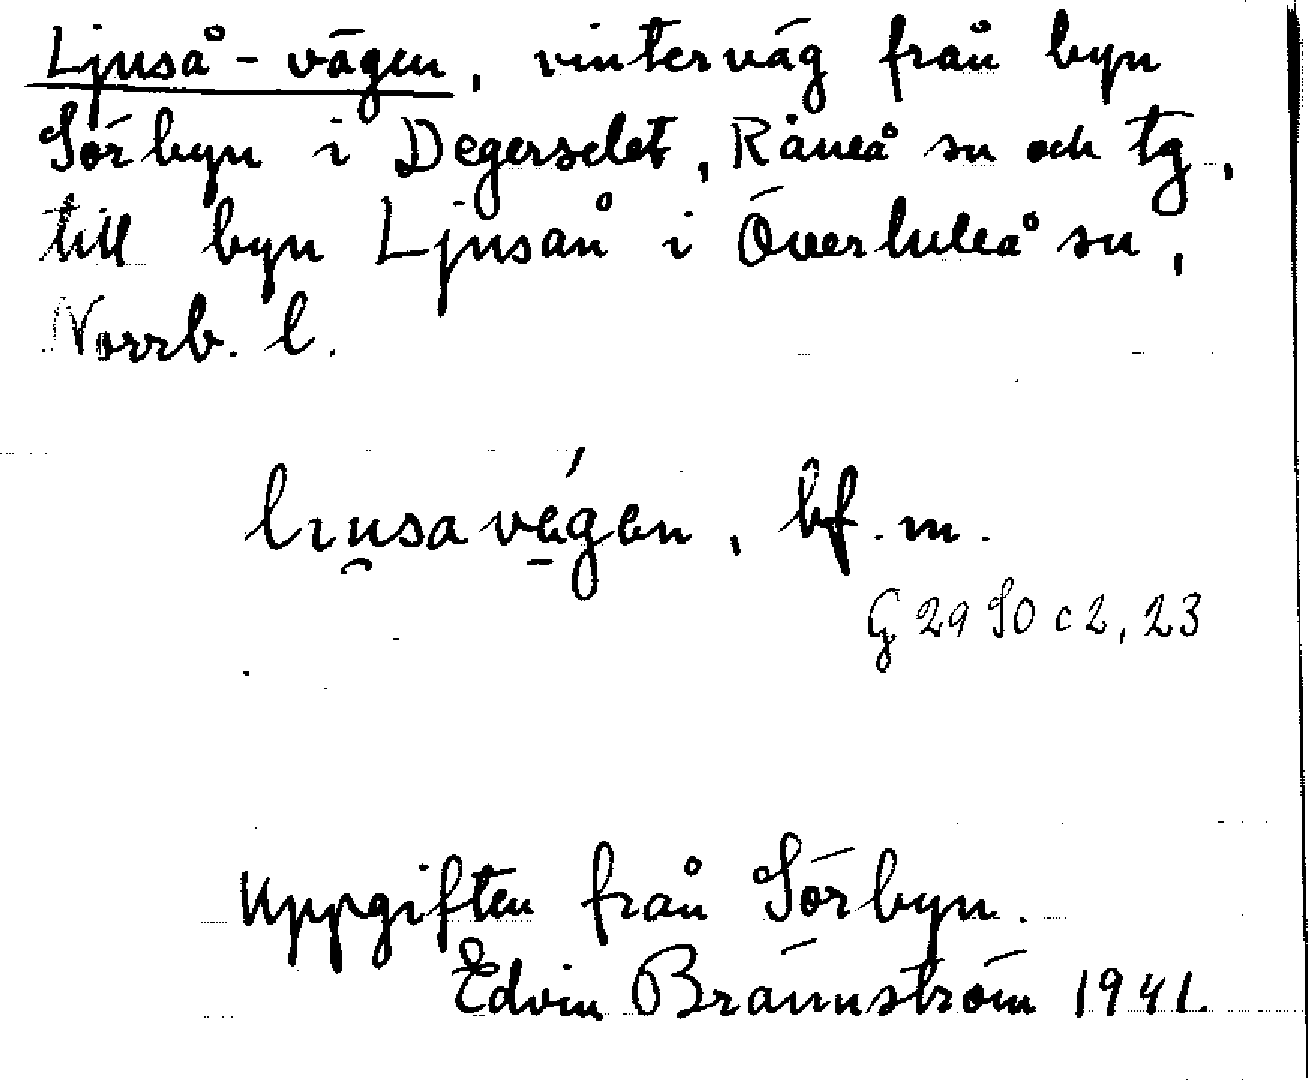 Ljuså-vägen, vinterväg från byn
Sörbyn i Degerselet, Råneå sn och tg,
till byn Ljusån i Överluleå sn,
Norrb. l.
lıu̯savę́gen, bf. m.
G 29 SO c 2, 23
Uppgiften från Sörbyn.
Edvin Brännström 1941.